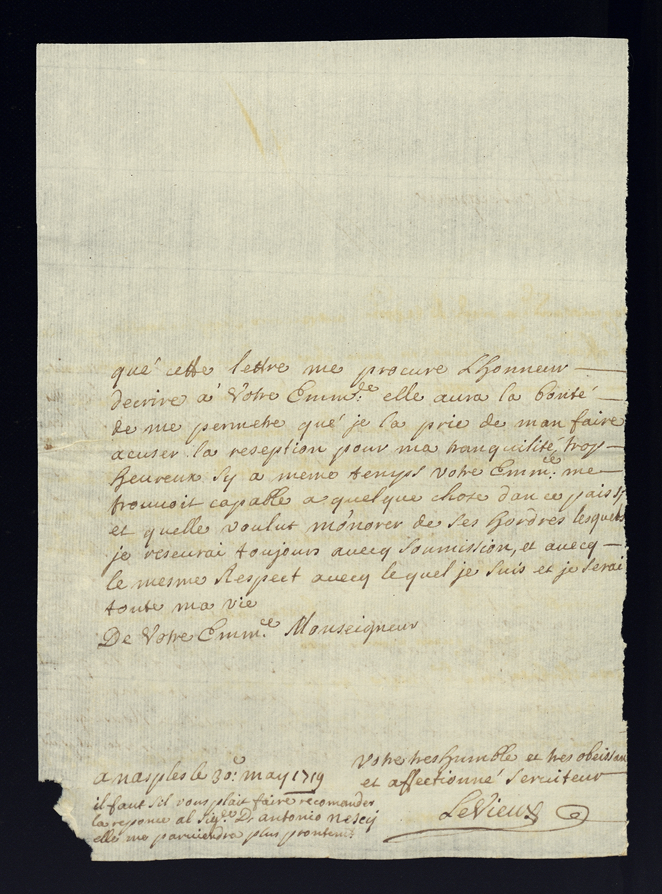 qué cette lettre me procure Lhonneur
decrire á Votre Emm.ce elle aura la bonté
de me permetre qué je la prie de man faire
acuser la reseption pour ma tranquilité, trop
heureux sy a meme temps Votre Emm.ce me
trouvoit capable a quelque chose dan ce pais sy
et quelle voulut m'onorer de ses hordres lesquels
je reseurai toujours avecq soumission, et avecq
le mesme Respect avecq le quel je suis et je serai
toute ma vie
De Votre Emm.ce Monseigneur
Votre tres humble et tres obeissan
et affectionné serviteur
LeVieux
a naples le 30: may 1719
il faut sil vous plait faire recomander
la reponce al Sig.re D. antonio
elle me parviendra plus prontemt